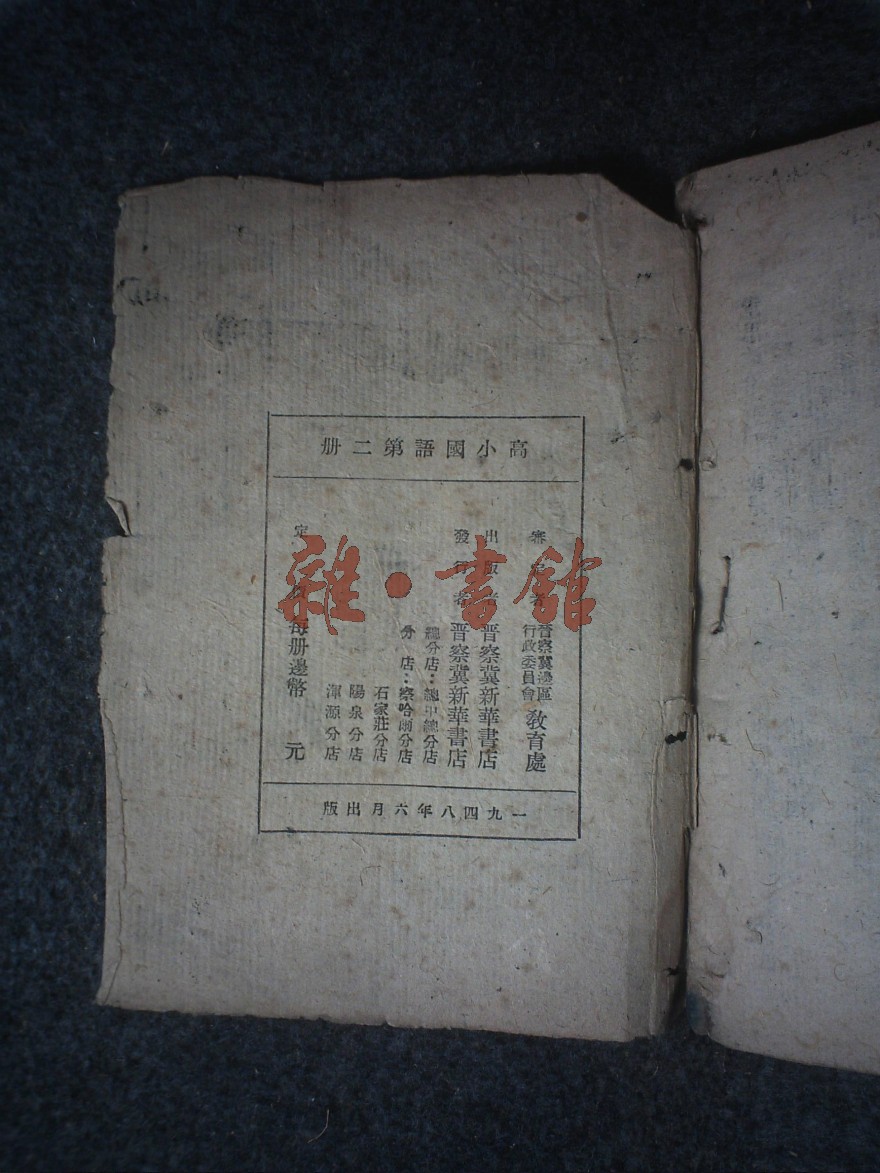 高小國語第二册
審定者 晉察冀邊區行政委員會 教育處
出版者 晉察冀新華書店
發行者 晉察冀新華書店
總分店：總中總分店
分店：察哈爾分店
石家莊分店
陽泉分店
渾源分店
定價 每册邊幣 元
一九四八年六月出版
雜·書館